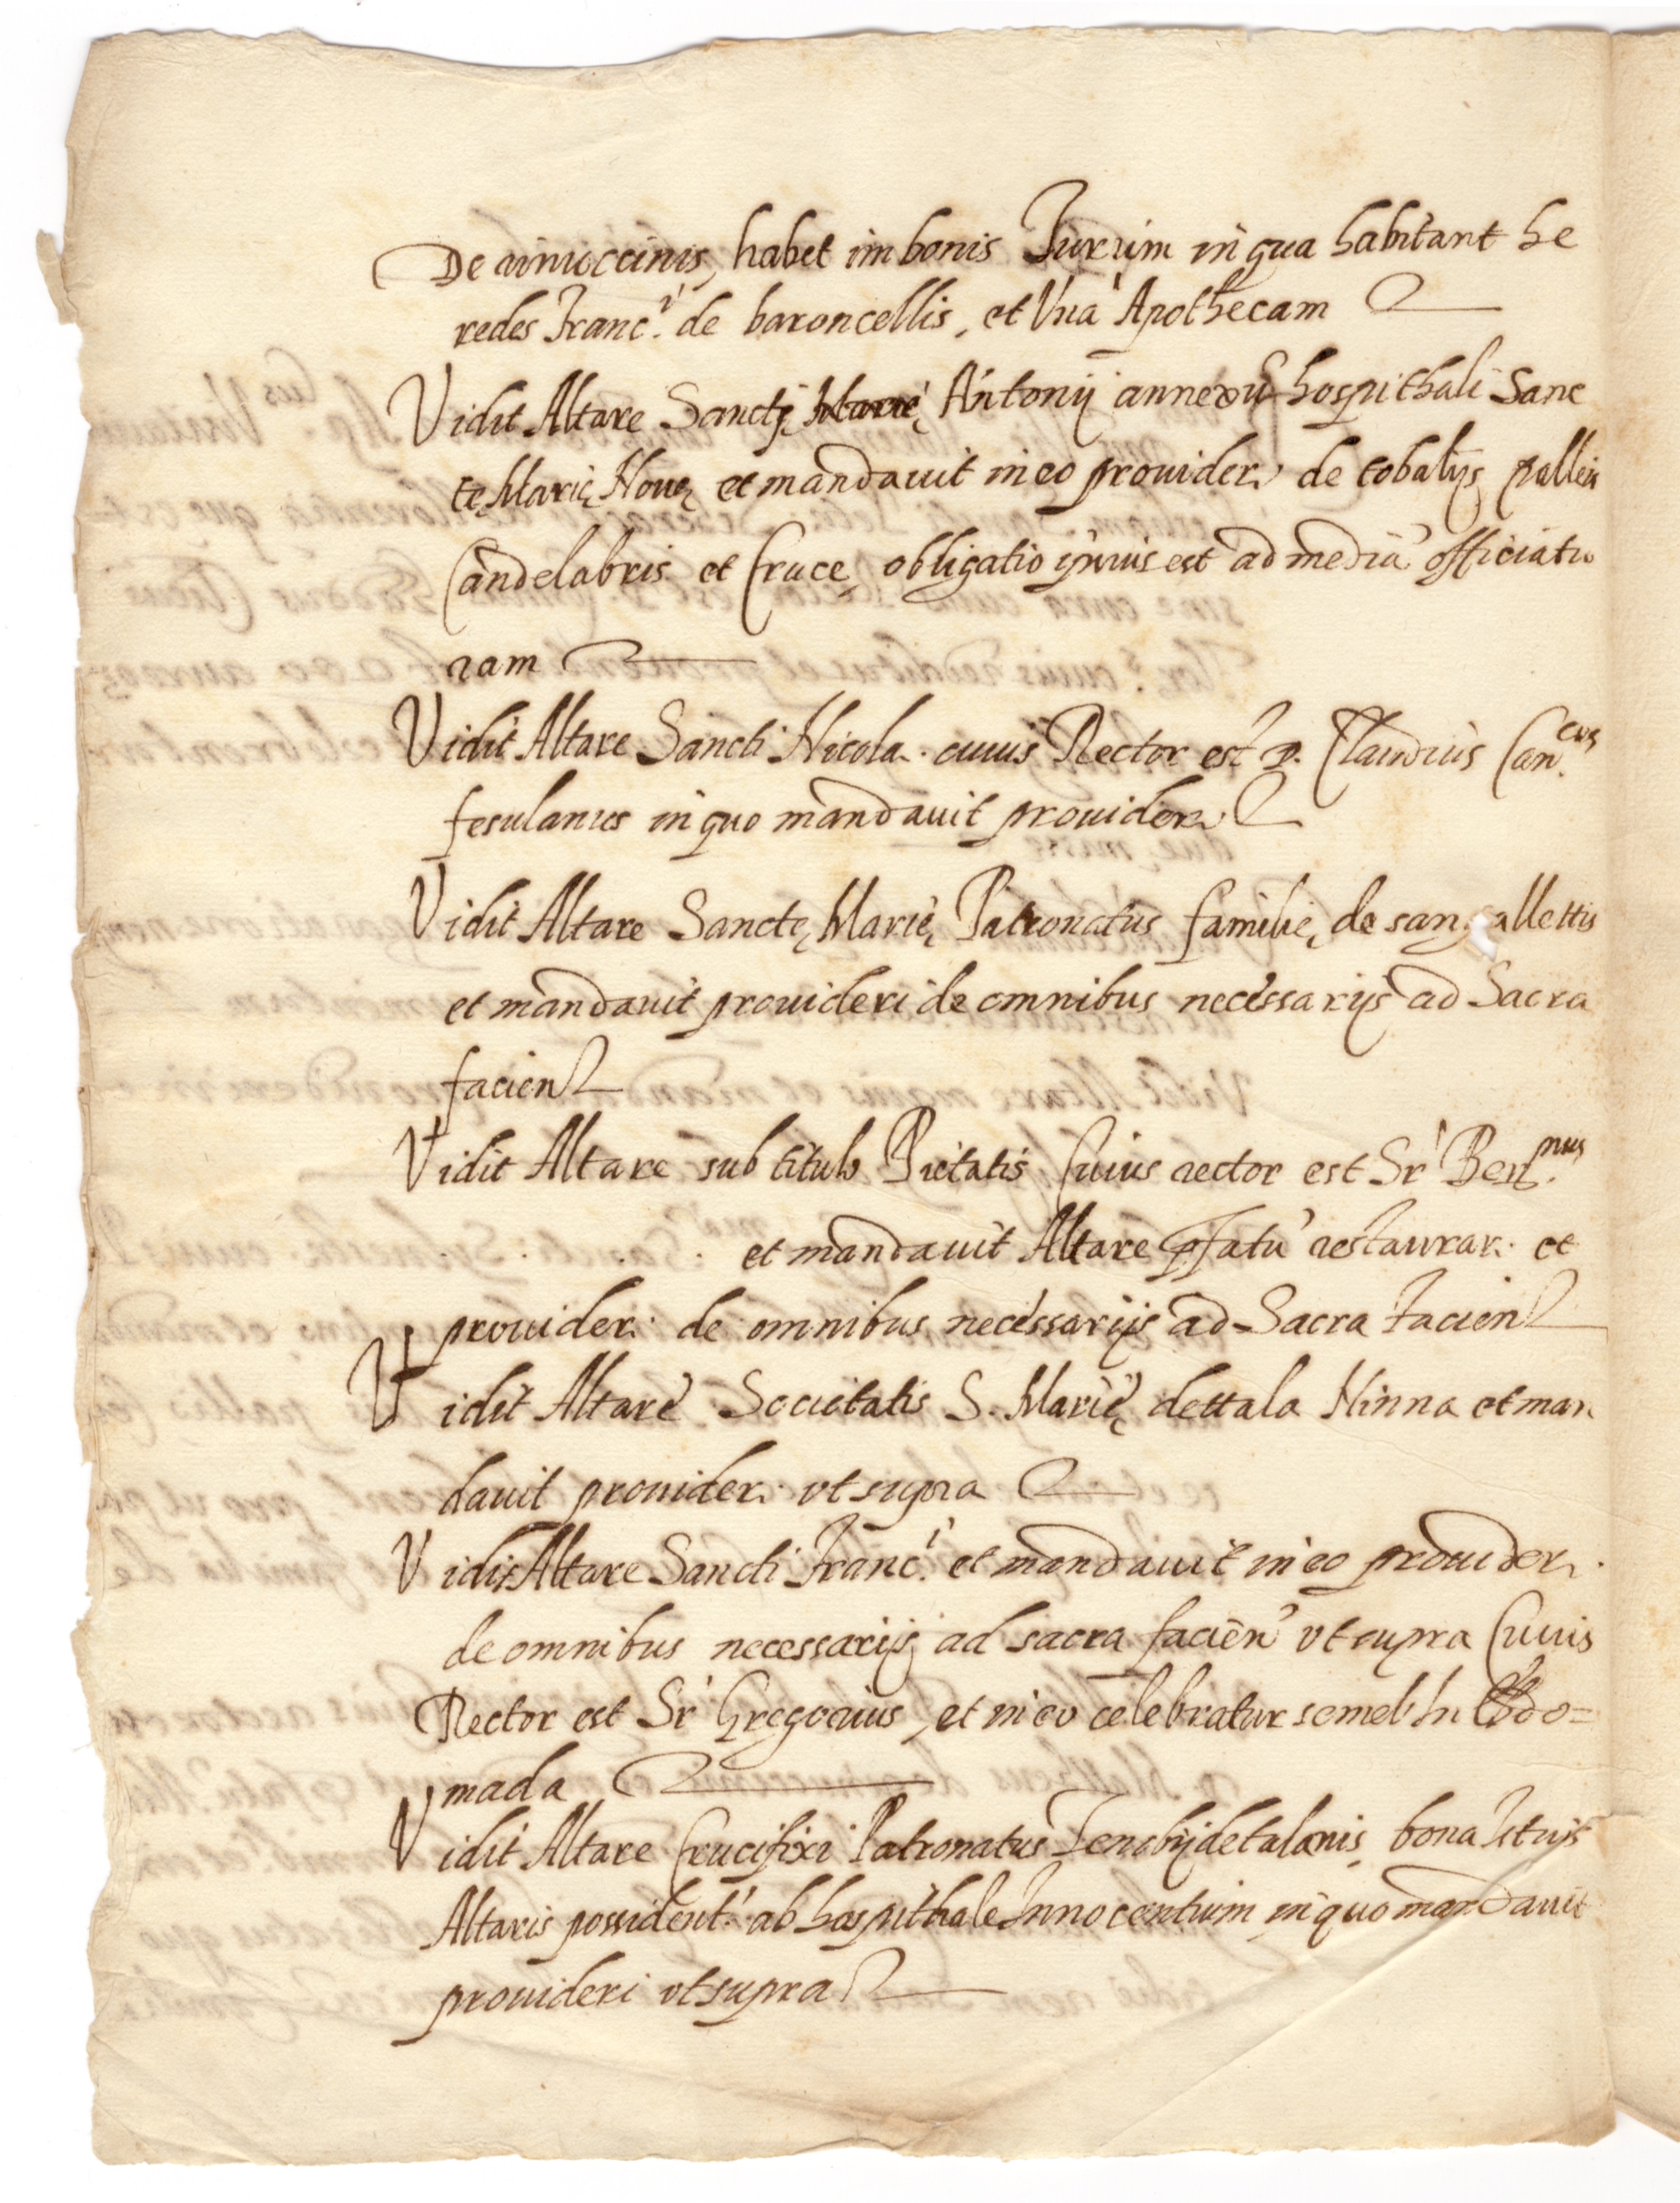 De vinuccinis, habet im bonis Turrim in qua habitant he
redes Franc.i de baroncellis, et Vná Apothecam
Vidit Altare Sanctę Marię Antonij annexũ hospithali Sanc
tę Marię Nouę et mandauit in eo prouideri de tobalijs palleis
Candelabris et Cruce, obligatio ipsius est ad mediá officiatu
ram
Vidit Altare Sancti Nicola. cuius Rector est D. Claudius Can.cus
fesulanus in quo mandauit prouideri
Vidit Altare Sanctę Marię Patronatus familię de sangallettis
et mandauit prouideri de omnibus necessarijs ad Sacra
facien
Vidit Altare sub titulo Pietatis Cuius rector est Sr Ben.nus
. . . : et mandauit Altare pfatú restaurar: et
prouider: de omnibus necessarijs ad Sacra facien
Vidit Altare Societatis S. Marię detta la Ninna et man
dauit prouider: vt supra
Vidit Altare Sancti Franc.i et mandauit in eo prouider:
de omnibus necessarijs ad sacra facien vt supra Cuius
Rector est Sr Gregorius, et in eo celebratur semel in Ebdo=
mada
Vidit Altare Crucifixi Patronatus Zenobij de talanis, bona Istius
Altaris possident. ab hospithale Innocentium in quo mandauit
prouideri vt supra